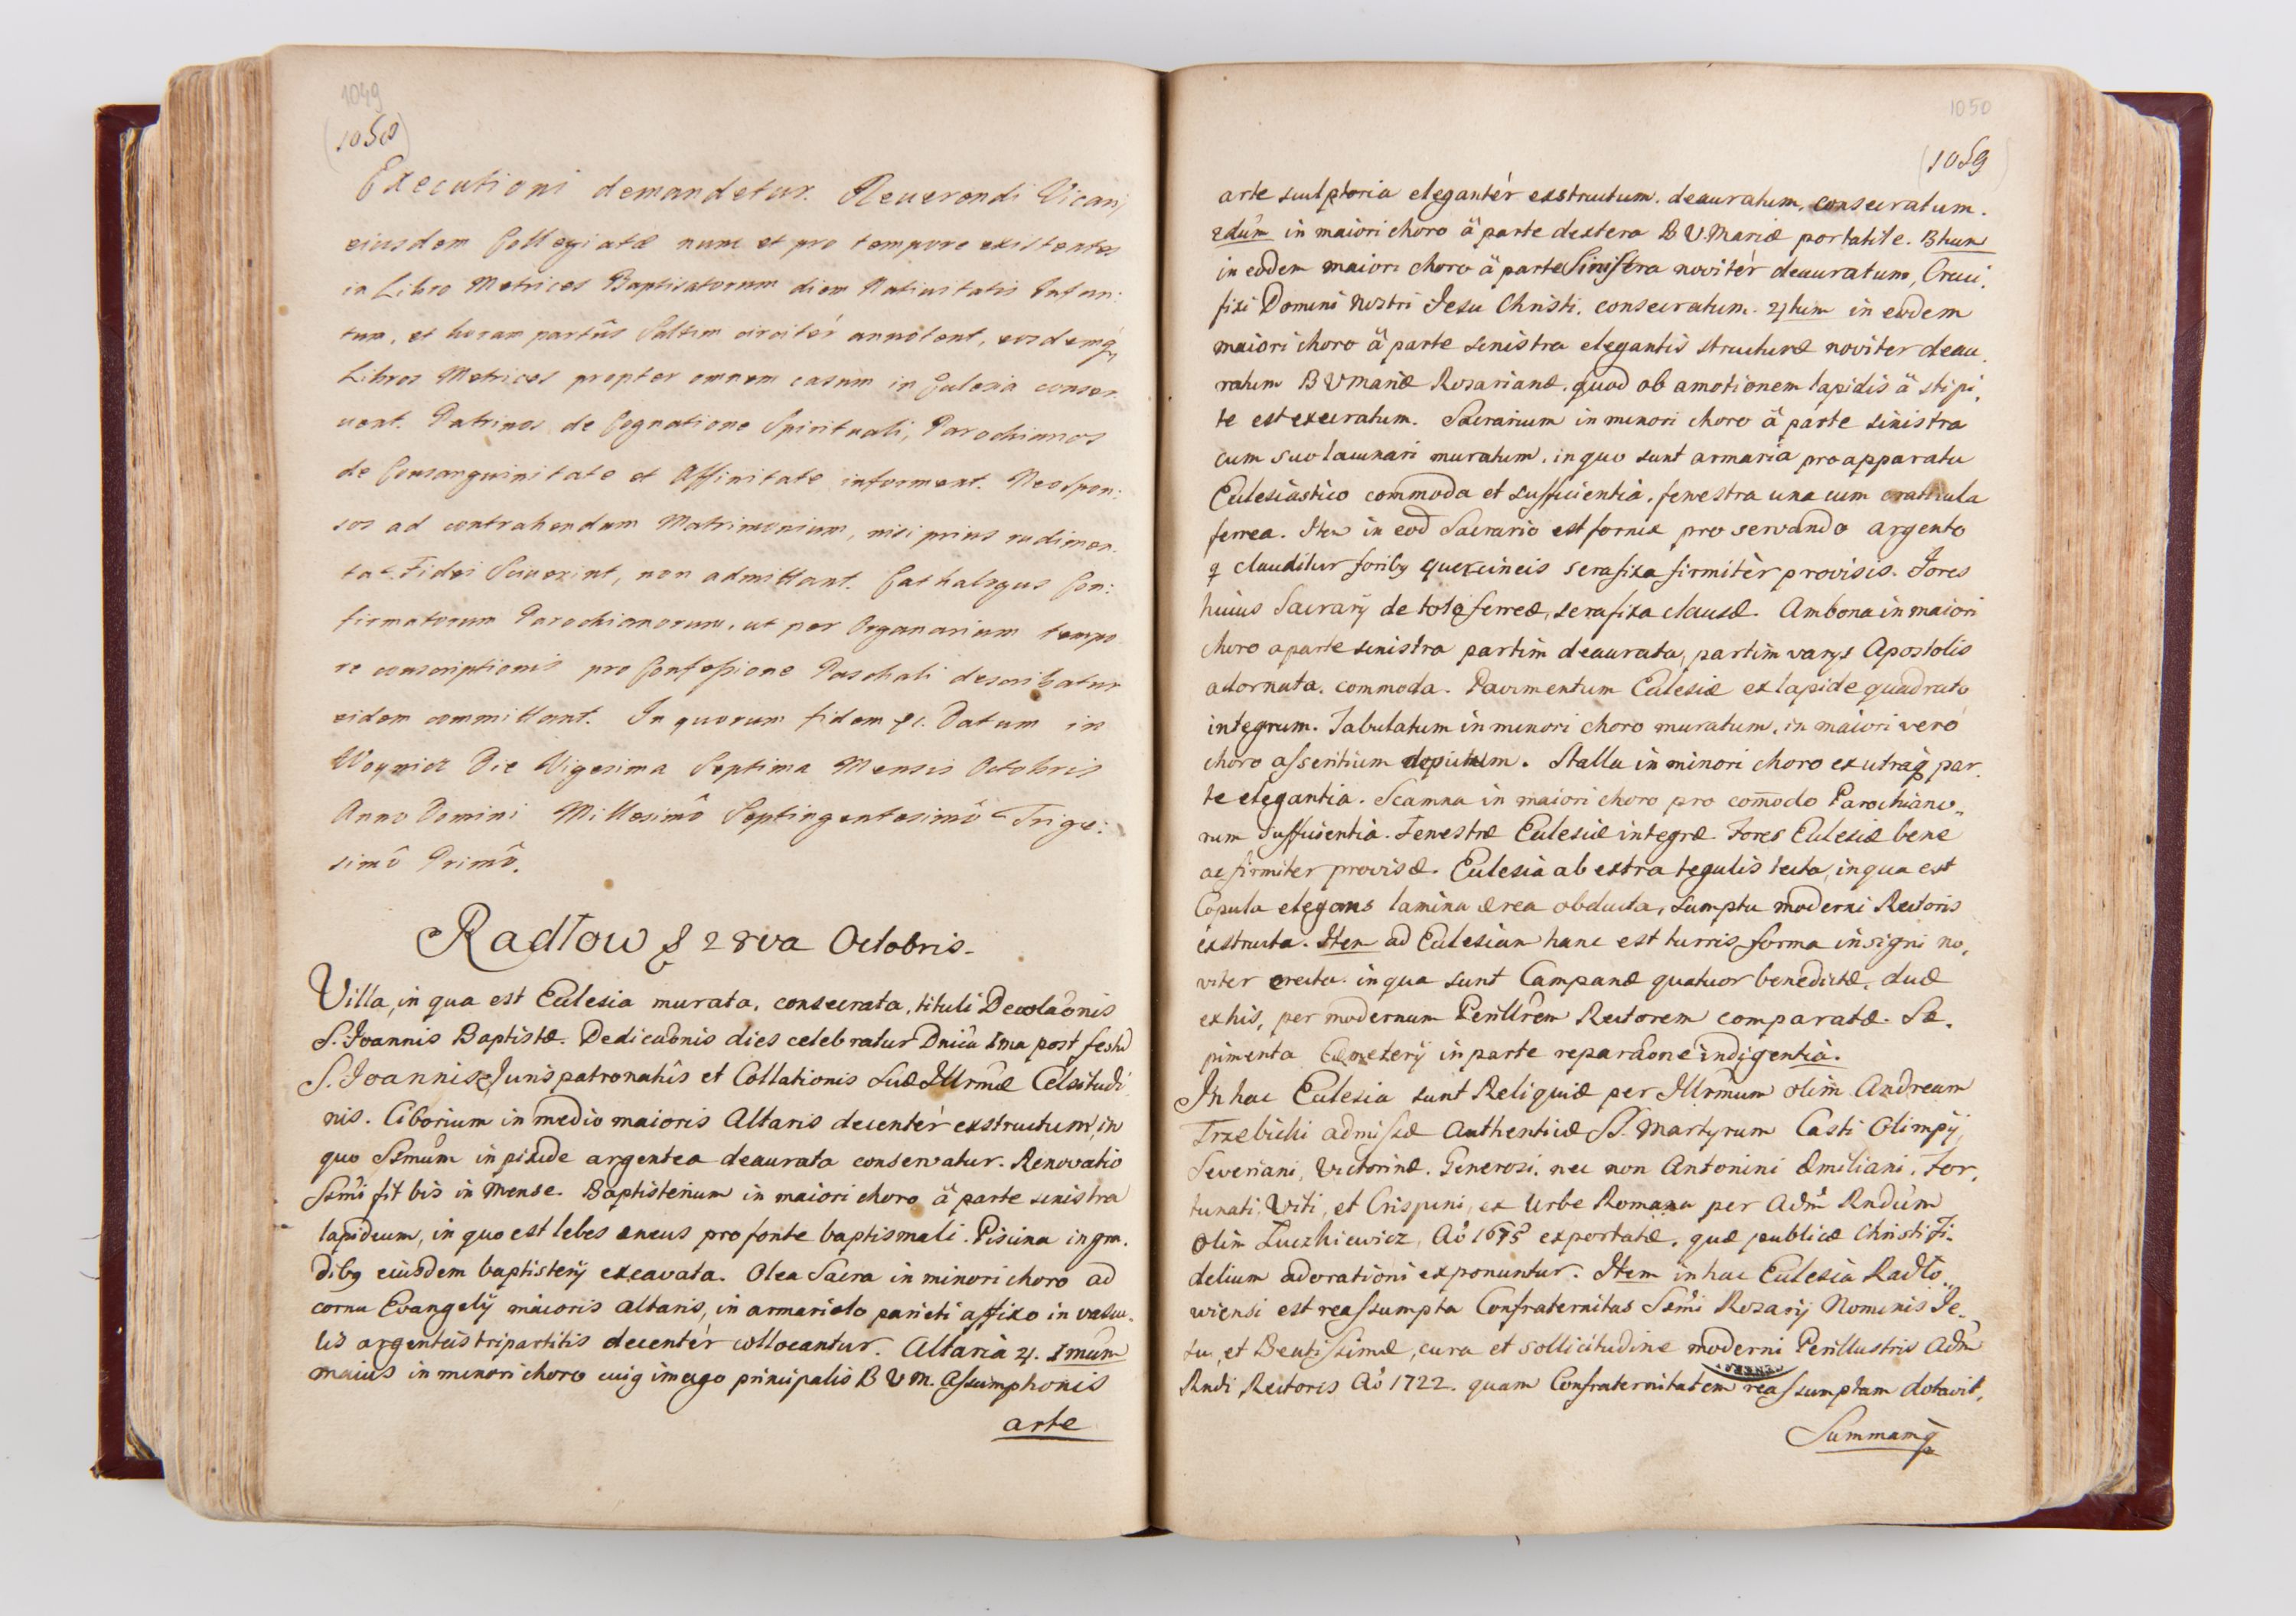 1049
(1058)
Executioni demandetur. Reuerendi Vicarij
eiusdem Collegiatæ nunc et pro tempore existentes
in Libro Metrices Baptisatorum diem Natiuitatis Infan:
tum, et horam partûs Saltim circitér annotent, eosdemq
Libros Metrices propter omnem casum in Eclesia conser
uent. Patrinos de Cognatione Spirituali, Parochianos
de Consanguinitate et Affinitate informent. Neospon:
sos ad contrahendum Matrimonium, nisi prius rudimen
ta Fidei Sciuerint, non admittant. Cathalogus Con:
firmatorum Parochianorum, ut per Organarium tempo
re conscriptionis pro Confeſsione Paschali describatur
eidem committant. In quorum fidem Datum in
Woynicz Die Vigesima Septima Mensis Octobris
Anno Domini Millesimô Septingentesimô Trige:
simô Primô.
Radłow 28va Octobris.
Villa, in qua est Eclesia murata, consecrata, tituli Decolaônis
S. Joannis Baptistæ. Dedicaônis dies celebratur Dnica Ima post festũ
S. Joannis, Juris patronatûs et Collationis Suæ Illrmæ Celsitudi
nis. Ciborium in medio maioris Altaris decentér exstructum, in
quo Ssmum in pixide argentea deaurata conservatur. Renovatio
Ssmi fit bis in Mense. Baptisterium in maiori choro â parte sinistra
lapideum, in quo est lebes æneus pro fonte baptismali. Piscina in gra.
dibq eiusdem baptisterij excavata. Olea Sacra in minori choro ad
cornu Evangelij maioris altaris, in armariolo parieti affixo in vascu.
lis argenteis tripartitis decentér collocantur. Altaria 4. 1mum
maius in minori choro cuiq imago principalis B V M. Aſsumptionis
arte
1050
(1059)
arte sculptoria elegantér exstructum. deauratum, consecratum.
2dum in maiori choro â parte dextera B V. Mariæ portatile. 3tium
in eôdem maiori choro â parte Sinistra novitér deauratum, Cruci.
fixi Domini Nostri Jesu Christi. consecratum. 4tum in eôdem
maiori choro â parte sinistra elegantis structuræ noviter deau.
ratum B V Mariæ Rosarianæ, quod ob amotionem lapidis â stipi.
te est execratum. Sacrarium in minori choro â parte sinistra
cum suo lacunari muratum, in quo sunt armaria pro apparatu
Eclesiastico commoda et sufficientia, fenestra una cum craticula
ferrea. Item in eod Sacrario est fornix pro servando argento
q clauditur foribq quercineis serafixa firmitèr provisis. Fores
huius Sacrarij de totô ferreæ, serafixa clausæ. Ambona in maiori
choro a parte sinistra partim deaurata, partim varijs Apostolis
adornata, commoda. Pavimentum Eclesiæ ex lapide quadrato
integrum. Tabulatum in minori choro muratum, in maiori vero
choro aſseritium depictum. Stalla in minori choro ex utraq par.
te elegantia. Scamna in maiori choro pro com̃odo Parochiano„
rum Sufficientia. Fenestræ Eclesiæ integræ. Fores Eclesiæ bene
ac firmiter provisæ. Eclesia ab extra tegulis tecta, in qua est
Copula elegans lamina ærea obducta, sumptu moderni Rectoris
exstructa. Item ad Eclesiam hanc est turris forma insigni no,
viter erecta. in qua sunt Campanæ quatuor benedictæ, duæ
ex his, per modernum Perillrem Rectorem comparatæ. Sæ.
pimenta Cæmeterij in parte reparaône indigentia.
In hac Eclesia sunt Reliquiæ per Illrmum olim Andream
Trzebicki admiſsæ Authenticæ SS. Martyrum Casti Olimpij,
Severiani, Victorinæ. Generosi, nec non Antonini Æmiliani, For,
tunati, Viti, et Crispini, ex Urbe Romana per Adm Rndum
olim Luczkiewicz Aô exportatæ, quæ publicæ Christi Fi.
delium adorationi exponuntur. Item in hac Eclesia Radło„
wiensi est reaſsumpta Confraternitas Ssmi Rosarij Nominis Je.
su, et Beatiſsimæ, cura et sollicitudine moderni Perillustris Adm
Rndi Rectoris Aô 1722. quam Confraternitatem reaſsumptam dotavit,
Summamq